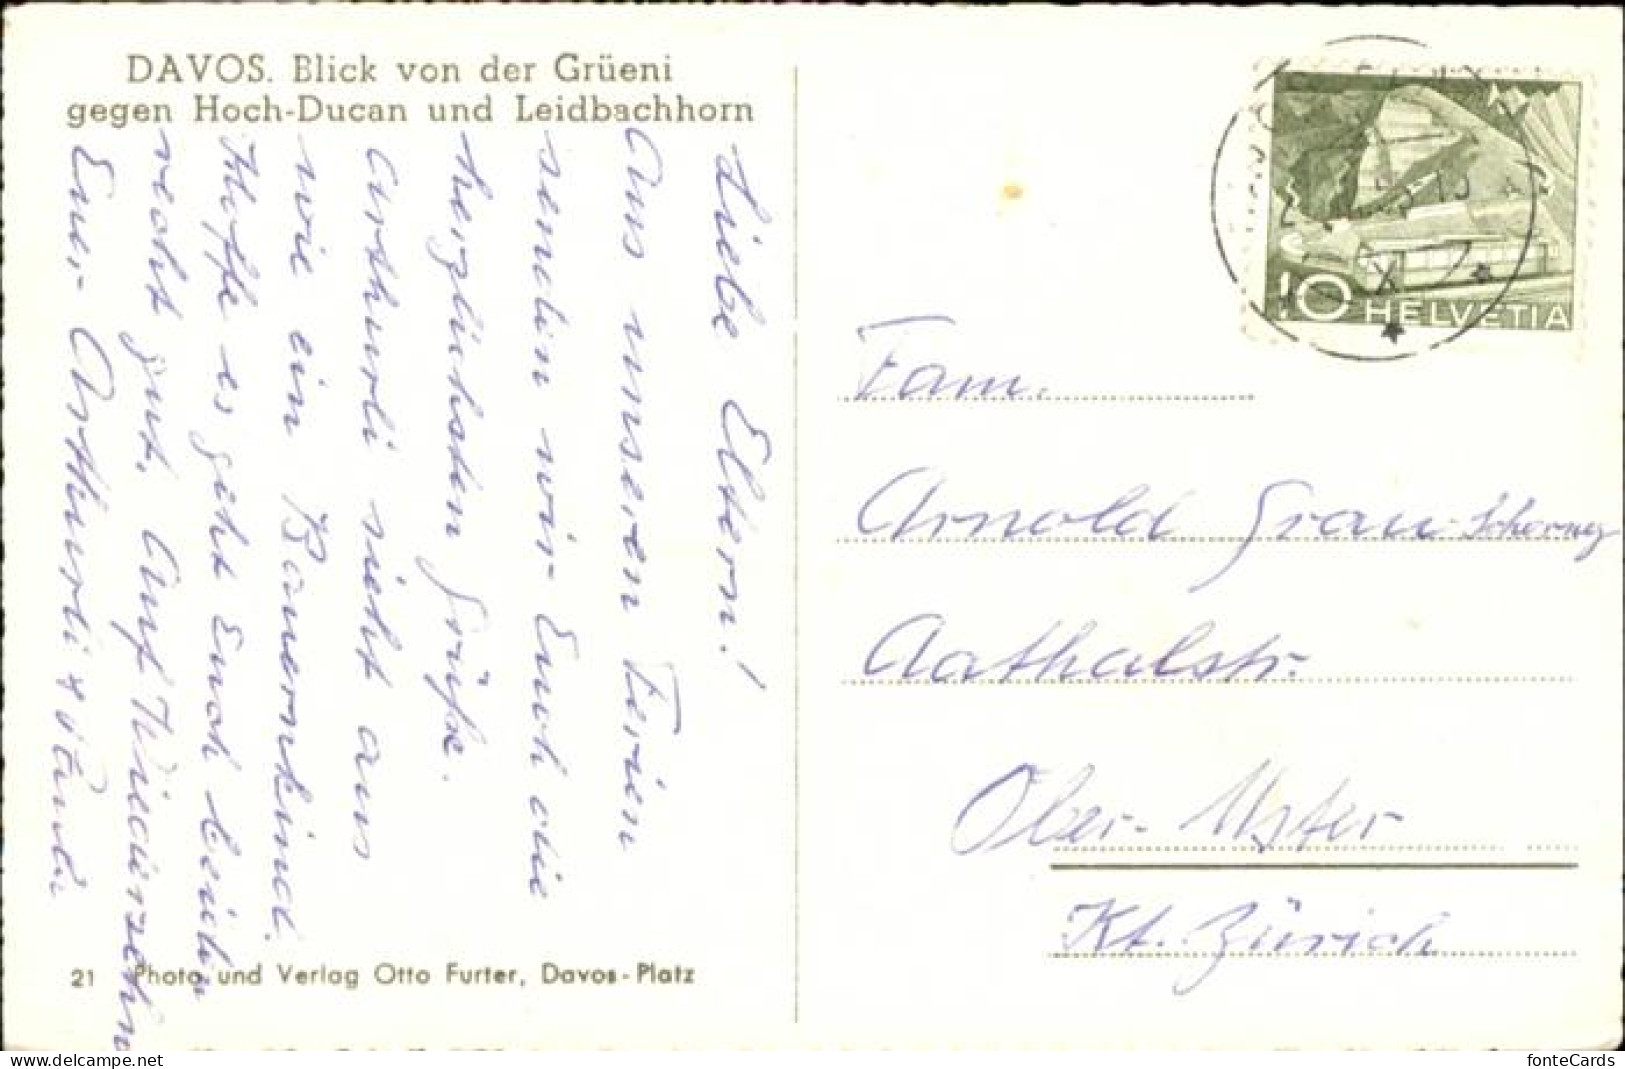 DAVOS. Blick von der Grüeni
gegen Hoch-Ducan und Leidbachhorn
Liebe Eltern!
Aus unseren Ferien
senden wir Euch die
herzlichsten Grüsse.
Arthurli sieht aus
wie ein Bauernkind.
Hoffe es geht Euch beiden
recht gut. Auf Wiedersehn
Eure Arthurli &
21 Photo und Verlag Otto Furter, Davos-Platz
10 HELVETIA
Fam.
Arnold Grau-
Aathalstr.
Ober-Uster
Kt. Zürich
fonteCards